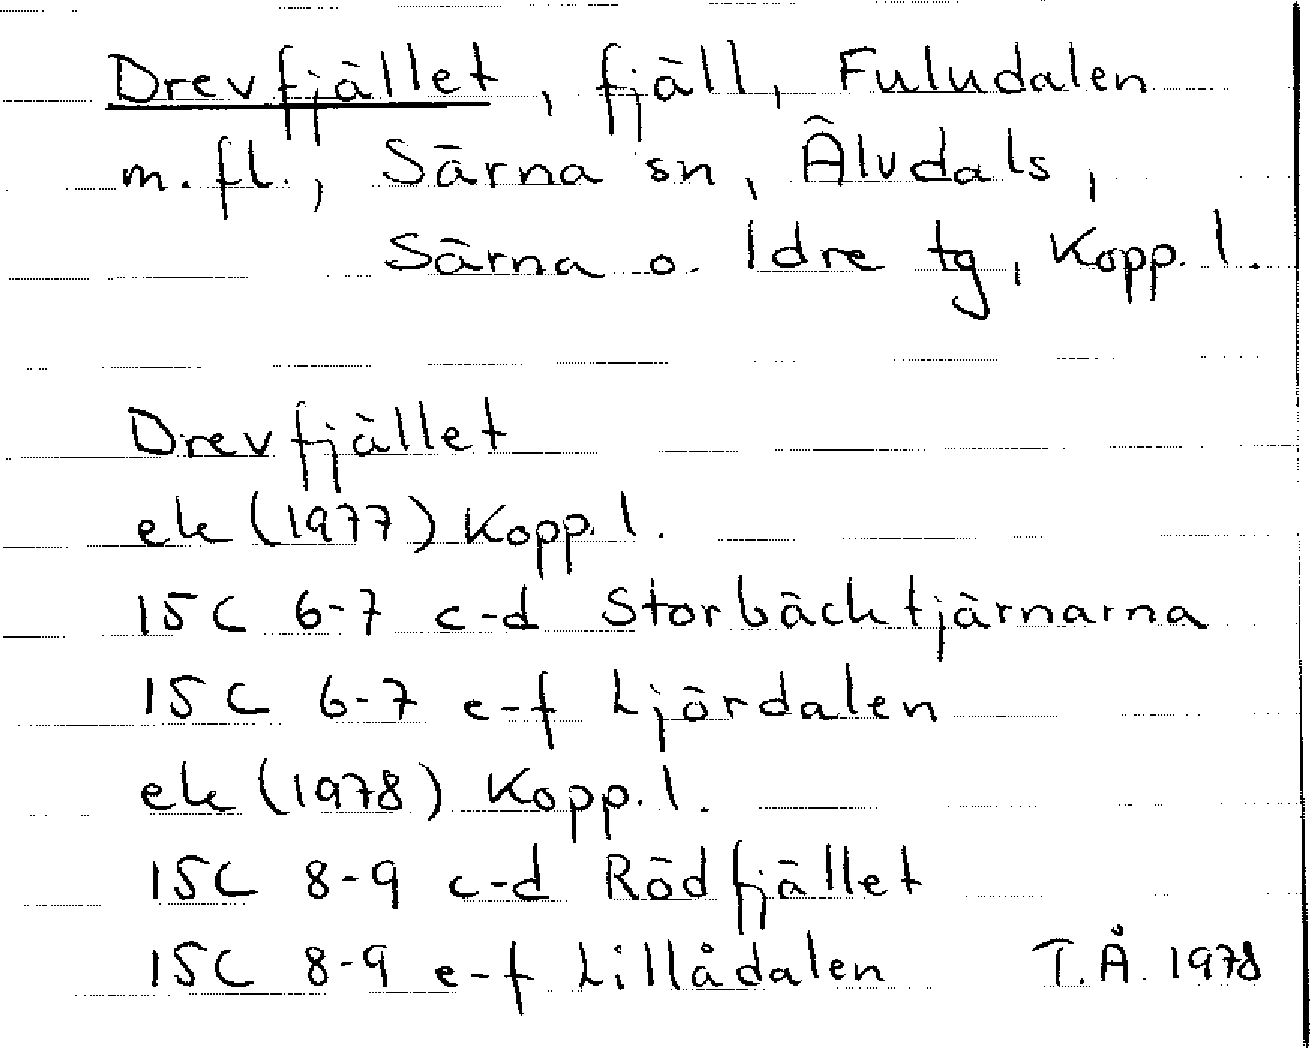 Drevfjället, fjäll, Fuludalen
m.fl., Särna sn, Älvdals,
Särna o. Idre tg, Kopp. l.
Drevfjället
ek (1977) Kopp. l.
15C 6-7 c-d Storbäcktjärnarna
15C 6-7 e-f Ljördalen
ek (1978) Kopp. l.
15C 8-9 c-d Rödfjället
15C 8-9 e-f Lillådalen T.Å. 1978